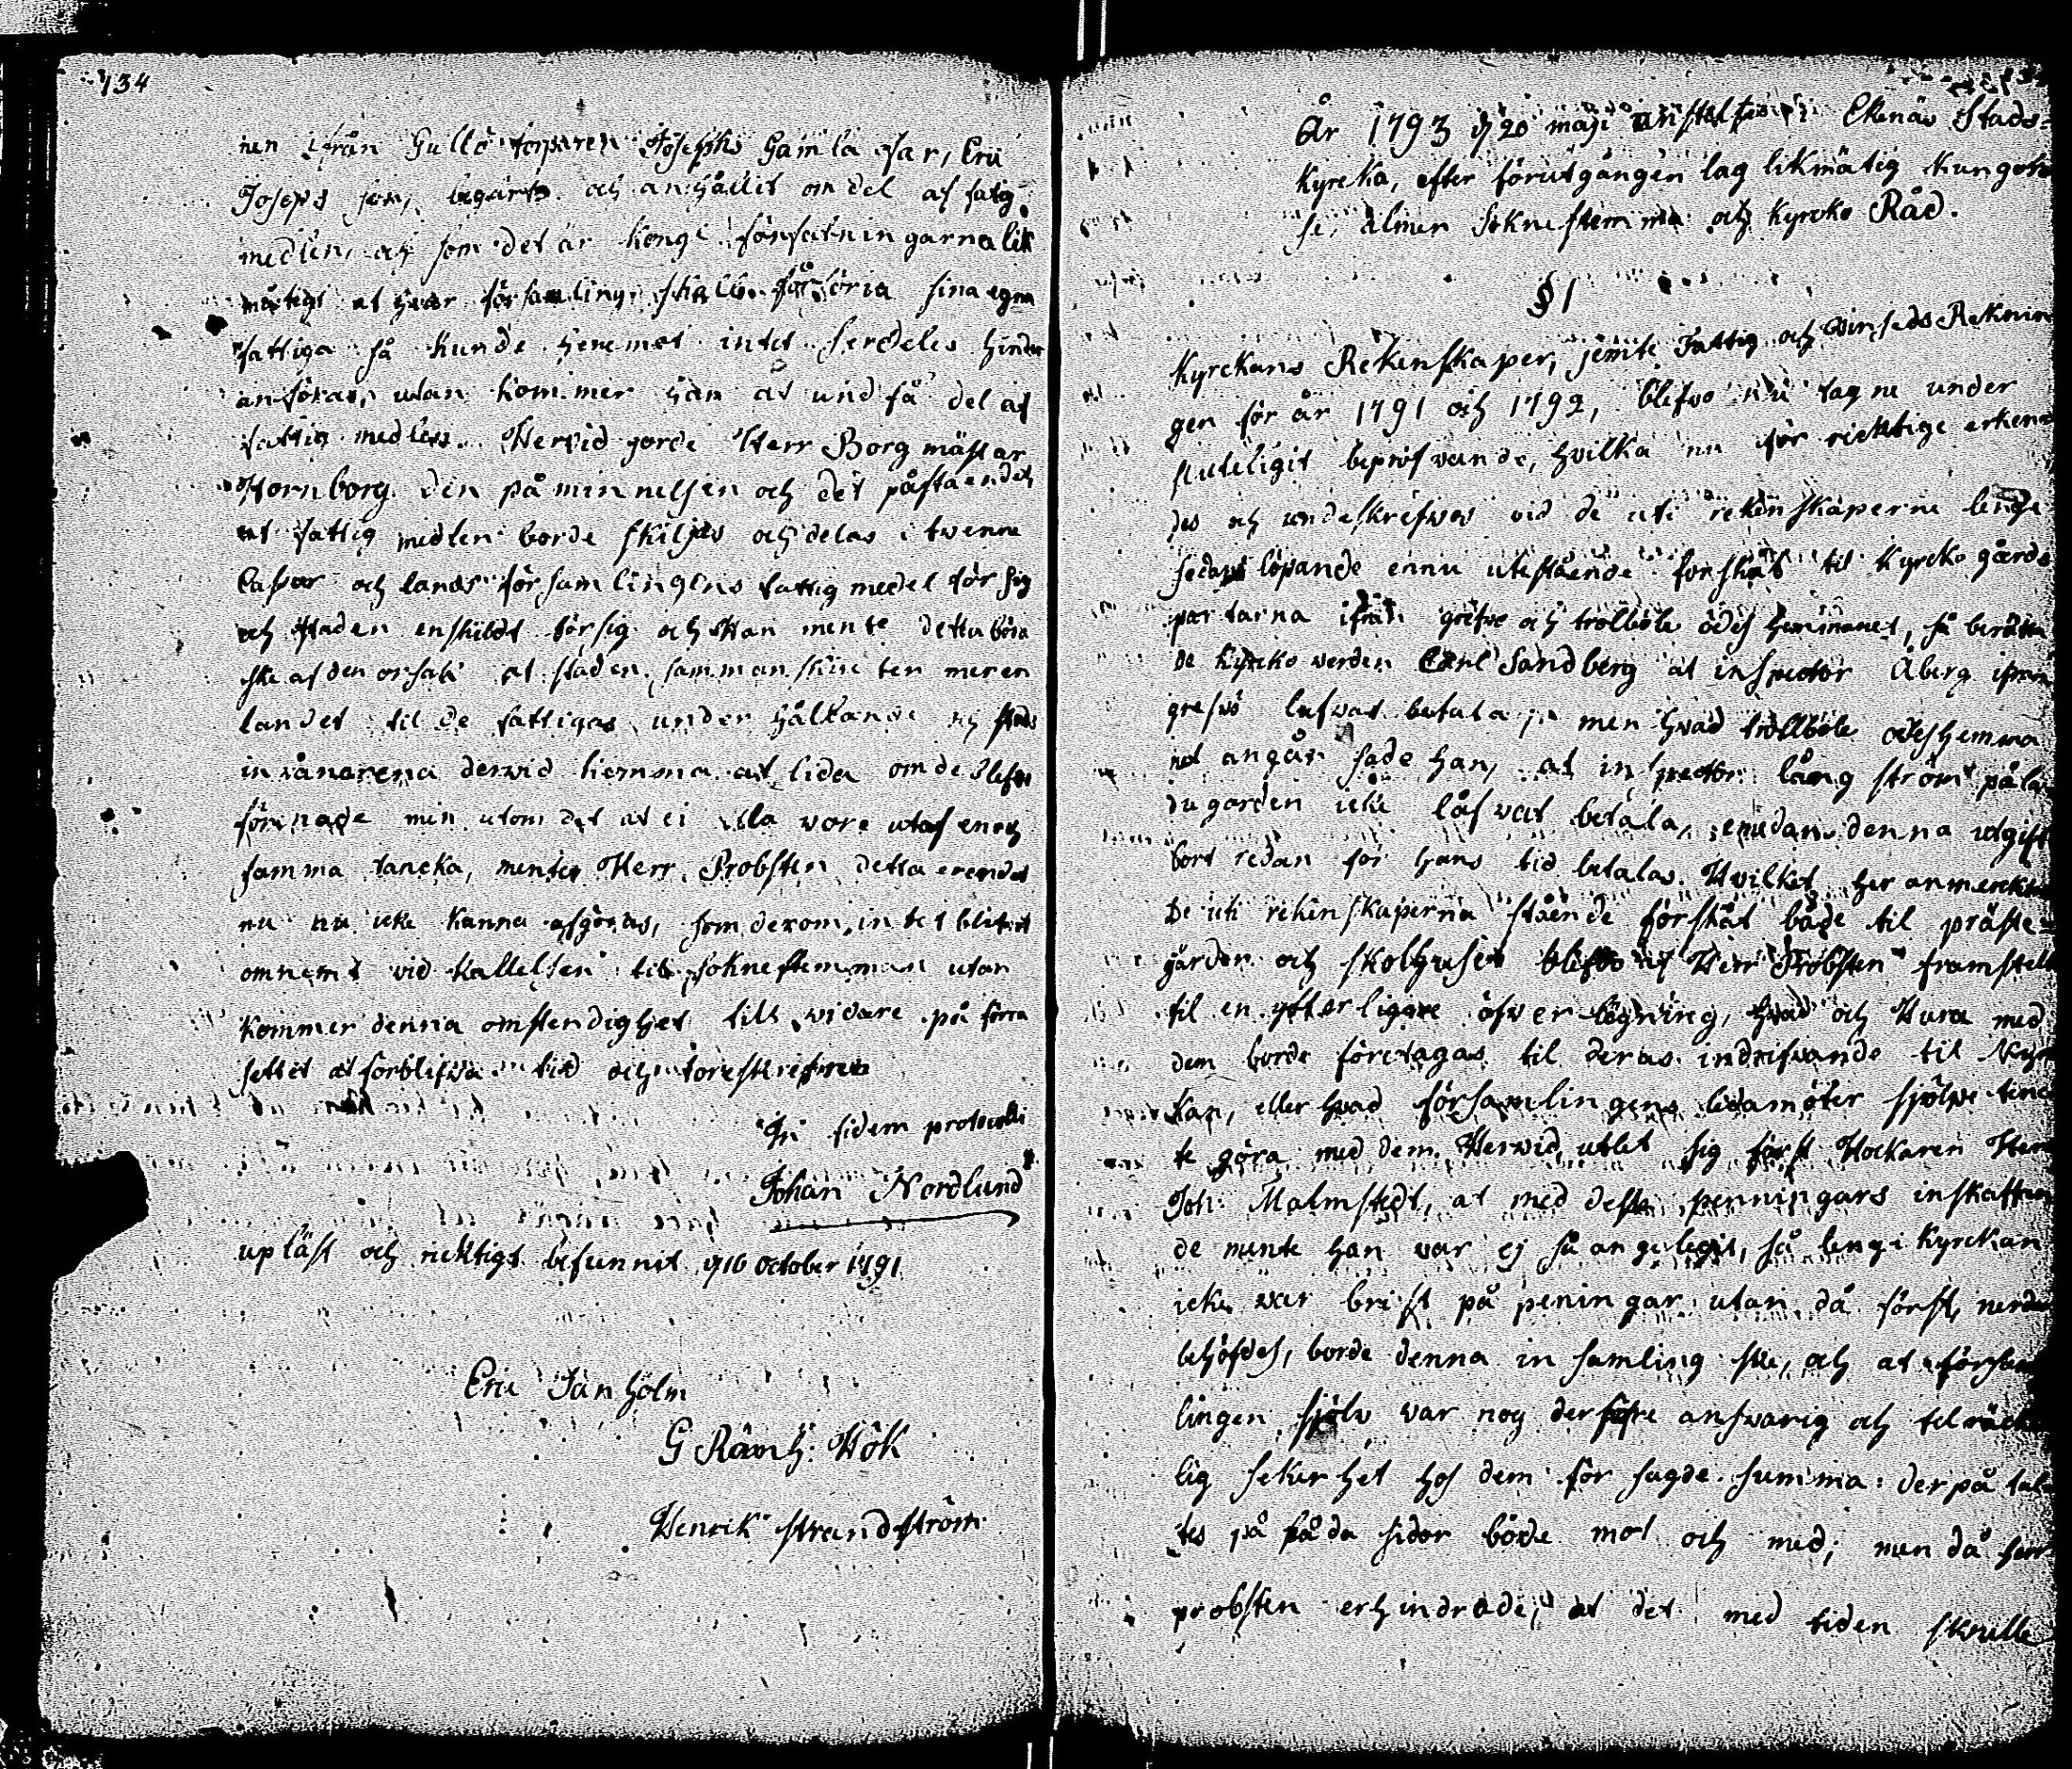 134
nen ifrån Gullö torparen Josephs Gamla far, Eric
Joseps son, begärts och anhållit om del af fatig
medlen, och som det är kongl. författningarna lik
mätigt at hvar församling skall försöria sina egna
fattiga så kunde heremot intet serdeles hinder
anföras, utan kommer han at undfå del af
fattig medlen. Hervid gorde Herr Borgmästar
Hornborg den påminnelsen och det påståendet
at fattig medlen borde skiljas och delas i twenne
Cassor och lands församlingens fattig medel för sig
och staden enskildt för sig och Han mente detta böra
ske af den orsak at staden sammanskütten mer en
landet til de fattigas underhållande och stads
invånarena dervid komma at lida om de blefve
förenade men utom det at ei alla vore utaf en och
samma tancka, mente Herr Probsten detta erendet
nu icke kunna afgöras, som derom intet blifvit
omnemt vid kallelsen til sokne stemman utan
kommer denna omstendighet till vidare på förra
settet at förblifva
In fidem protocolli
Johan Nordlund
upläst och ricktigt befunnit d 16 October 1791
Eric Janholm
G Hök
Henrik strandström
År 1793 d 20 maji anstaltes i Ekenäs Stads-
kyrcka, efter förutgången lag likmätig kungörel
se, almen Sokne stemma och kyrcko Råd.
§ 1
Kyrckans Räkenskaper, jemte Fattig och Reknin
gen för år 1791 och 1792, blefwo nu tagne under
sluteligit bepröfvande, hvilka nu för ricktige erken
des och underskrefwos vid de uti rekenskaperne lenge
sedan löpande ennu utestående forskått til kyrcko gårds
partarna ifrån grefwe och trolböle ödes hemmanet, så berätta
de kyrcko verden Carl Sandberg at inspector Åberg ifrån
lofvat betala, men hvad trollböle ödeshemma
net angår sade han, at inspector långström på la
dugorden icke låfvat betala, emedan denna utgift
bort redan för hans tid betalas. Hvilket her anmercktes
De uti rekenskaperna stående förskåt både til präste-
gården och skolhuset blefvo af Herr Probsten framstelte
til en ytterligare öfwerlägning, hvad och Hura med
dem borde företagas til deras indrifvande til kyrc
kan, eller hvad församlingens ledamöter sjelfve tenc
te göra med dem. Hervid utlet sig först Hockaren Herr
Joh: Malmstedt, at med desse penningars inskaffan
de mente han var ej så angelegit, så lenge kyrckan
icke var brist på peningar utan då först, nerde
behöfdes, borde denna insamling ske, och at försam
lingen sjelv var nog derföre answarig och tilräck
lig sekerhet hos dem för sagde summa: derpå tal-
tes på båda sidor både mot och med; men då herr
probsten erhindrade, at det med tiden skulle